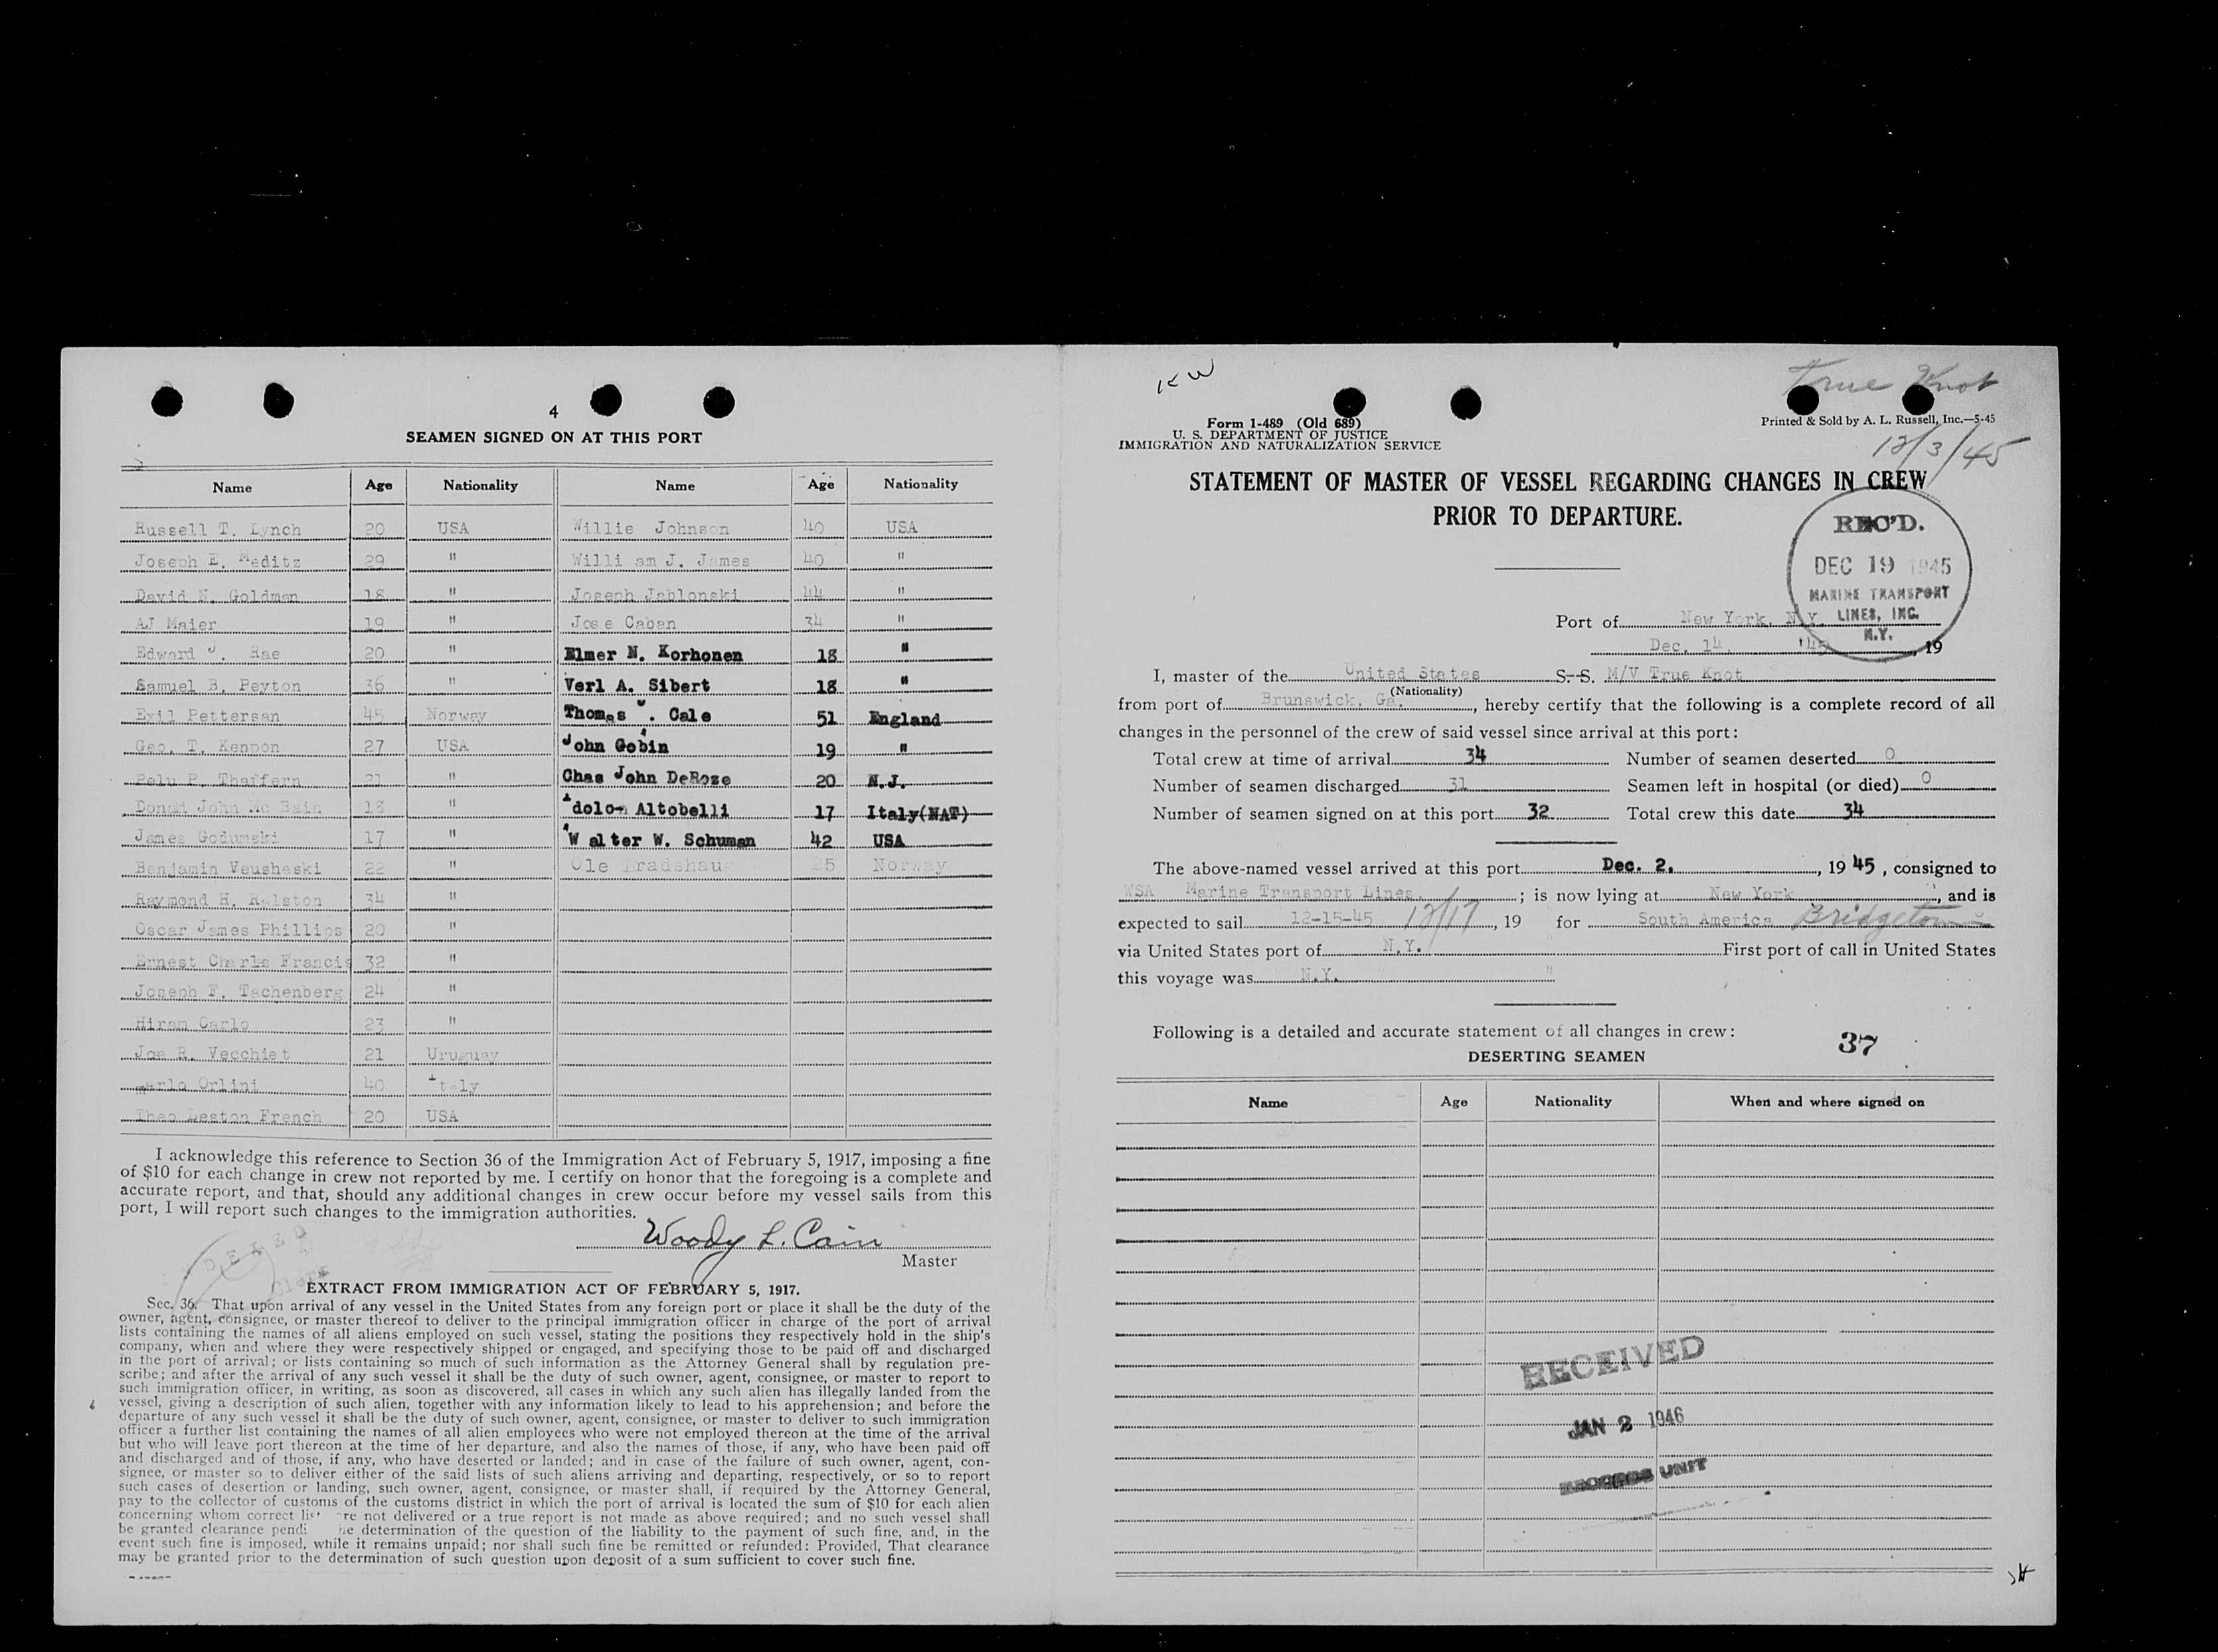 4
SEAMEN SIGNED ON AT THIS PORT
Name Age Nationality Name Age Nationality
Russell T. Lynch 20 USA Willie Johnson 40 USA
Joseph E. Meditz 29 " Willi am J. James 40 "
David N. Goldman 18 " Joseph Jablonski 44 "
AJ Maier 19 " Jose Caban 34 "
Edward J. Rae 20 " Elmer N. Korhonen 18 "
Samuel B. Peyton 36 " Verl A. Sibert 18 "
Exil Pettersen 45 Norway Thomas . Cale 51 England
Geo. T. Kennon 27 USA John Gobin 19 "
P. Thaffern 21 " Chas John DeRoze 20 N.J.
Donad John Mc Bain 18 " Altobelli 17 Italy(NAT)
James Godumski 17 " W alter W. Schuman 42 USA
Benjamin Veusheski 22 " Ole Bradshau 25 Norway
Raymond H. Ralston 34 "
Oscar James Phillips 20 "
Ernest Charls Francis 32 "
Joseph F. Tachenberg 24 "
Hiram Carlo 23 "
Jos R. Vecchiet 21 Uruguay
Orlini 40 Italy
Theo Leston French 20 USA
I acknowledge this reference to Section 36 of the Immigration Act of February 5, 1917, imposing a fine
of $10 for each change in crew not reported by me. I certify on honor that the foregoing is a complete and
accurate report, and that, should any additional changes in crew occur before my vessel sails from this
port, I will report such changes to the immigration authorities.
Woody L. Cain
Master
EXTRACT FROM IMMIGRATION ACT OF FEBRUARY 5, 1917.
Sec. 36. That upon arrival of any vessel in the United States from any foreign port or place it shall be the duty of the
owner, agent, consignee, or master thereof to deliver to the principal immigration officer in charge of the port of arrival
lists containing the names of all aliens employed on such vessel, stating the positions they respectively hold in the ship's
company, when and where they were respectively shipped or engaged, and specifying those to be paid off and discharged
in the port of arrival; or lists containing so much of such information as the Attorney General shall by regulation pre-
scribe; and after the arrival of any such vessel it shall be the duty of such owner, agent, consignee, or master to report to
such immigration officer, in writing, as soon as discovered, all cases in which any such alien has illegally landed from the
vessel, giving a description of such alien, together with any information likely to lead to his apprehension; and before the
departure of any such vessel it shall be the duty of such owner, agent, consignee, or master to deliver to such immigration
officer a further list containing the names of all alien employees who were not employed thereon at the time of the arrival
but who will leave port thereon at the time of her departure, and also the names of those, if any, who have been paid off
and discharged and of those, if any, who have deserted or landed; and in case of the failure of such owner, agent, con-
signee, or master so to deliver either of the said lists of such aliens arriving and departing, respectively, or so to report
such cases of desertion or landing, such owner, agent, consignee, or master shall, if required by the Attorney General,
pay to the collector of customs of the customs district in which the port of arrival is located the sum of $10 for each alien
concerning whom correct lis re not delivered or a true report is not made as above required; and no such vessel shall
be granted clearance pendi he determination of the question of the liability to the payment of such fine, and, in the
event such fine is imposed, while it remains unpaid; nor shall such fine be remitted or refunded: Provided, That clearance
may be granted prior to the determination of such question upon deposit of a sum sufficient to cover such fine.
True Knot
Form 1-489 (Old 689)
U. S. DEPARTMENT OF JUSTICE
IMMIGRATION AND NATURALIZATION SERVICE
Printed & Sold by A. L. Russell, Inc.—5-45
12/3/45
STATEMENT OF MASTER OF VESSEL REGARDING CHANGES IN CREW
PRIOR TO DEPARTURE.
REC'D.
DEC 19 1945
MARINE TRANSPORT
LINES, INC.
N.Y.
Port of New York, N.Y.
Dec. 14, '45, 19
I, master of the United States S. S. M/V True Knot
(Nationality)
from port of Brunswick, Ga., hereby certify that the following is a complete record of all
changes in the personnel of the crew of said vessel since arrival at this port:
Total crew at time of arrival 34 Number of seamen deserted 0
Number of seamen discharged 31 Seamen left in hospital (or died) 0
Number of seamen signed on at this port 32 Total crew this date 34
The above-named vessel arrived at this port Dec. 2, 19 45, consigned to
WSA Marine Transport Lines, ; is now lying at New York, and is
expected to sail 12-15-45 12/17, 19 for South America Bridgetown
via United States port of N.Y. First port of call in United States
this voyage was N.Y. "
Following is a detailed and accurate statement of all changes in crew:
37
DESERTING SEAMEN
Name Age Nationality When and where signed on
RECEIVED
JAN 2 1946
RECORDS UNIT